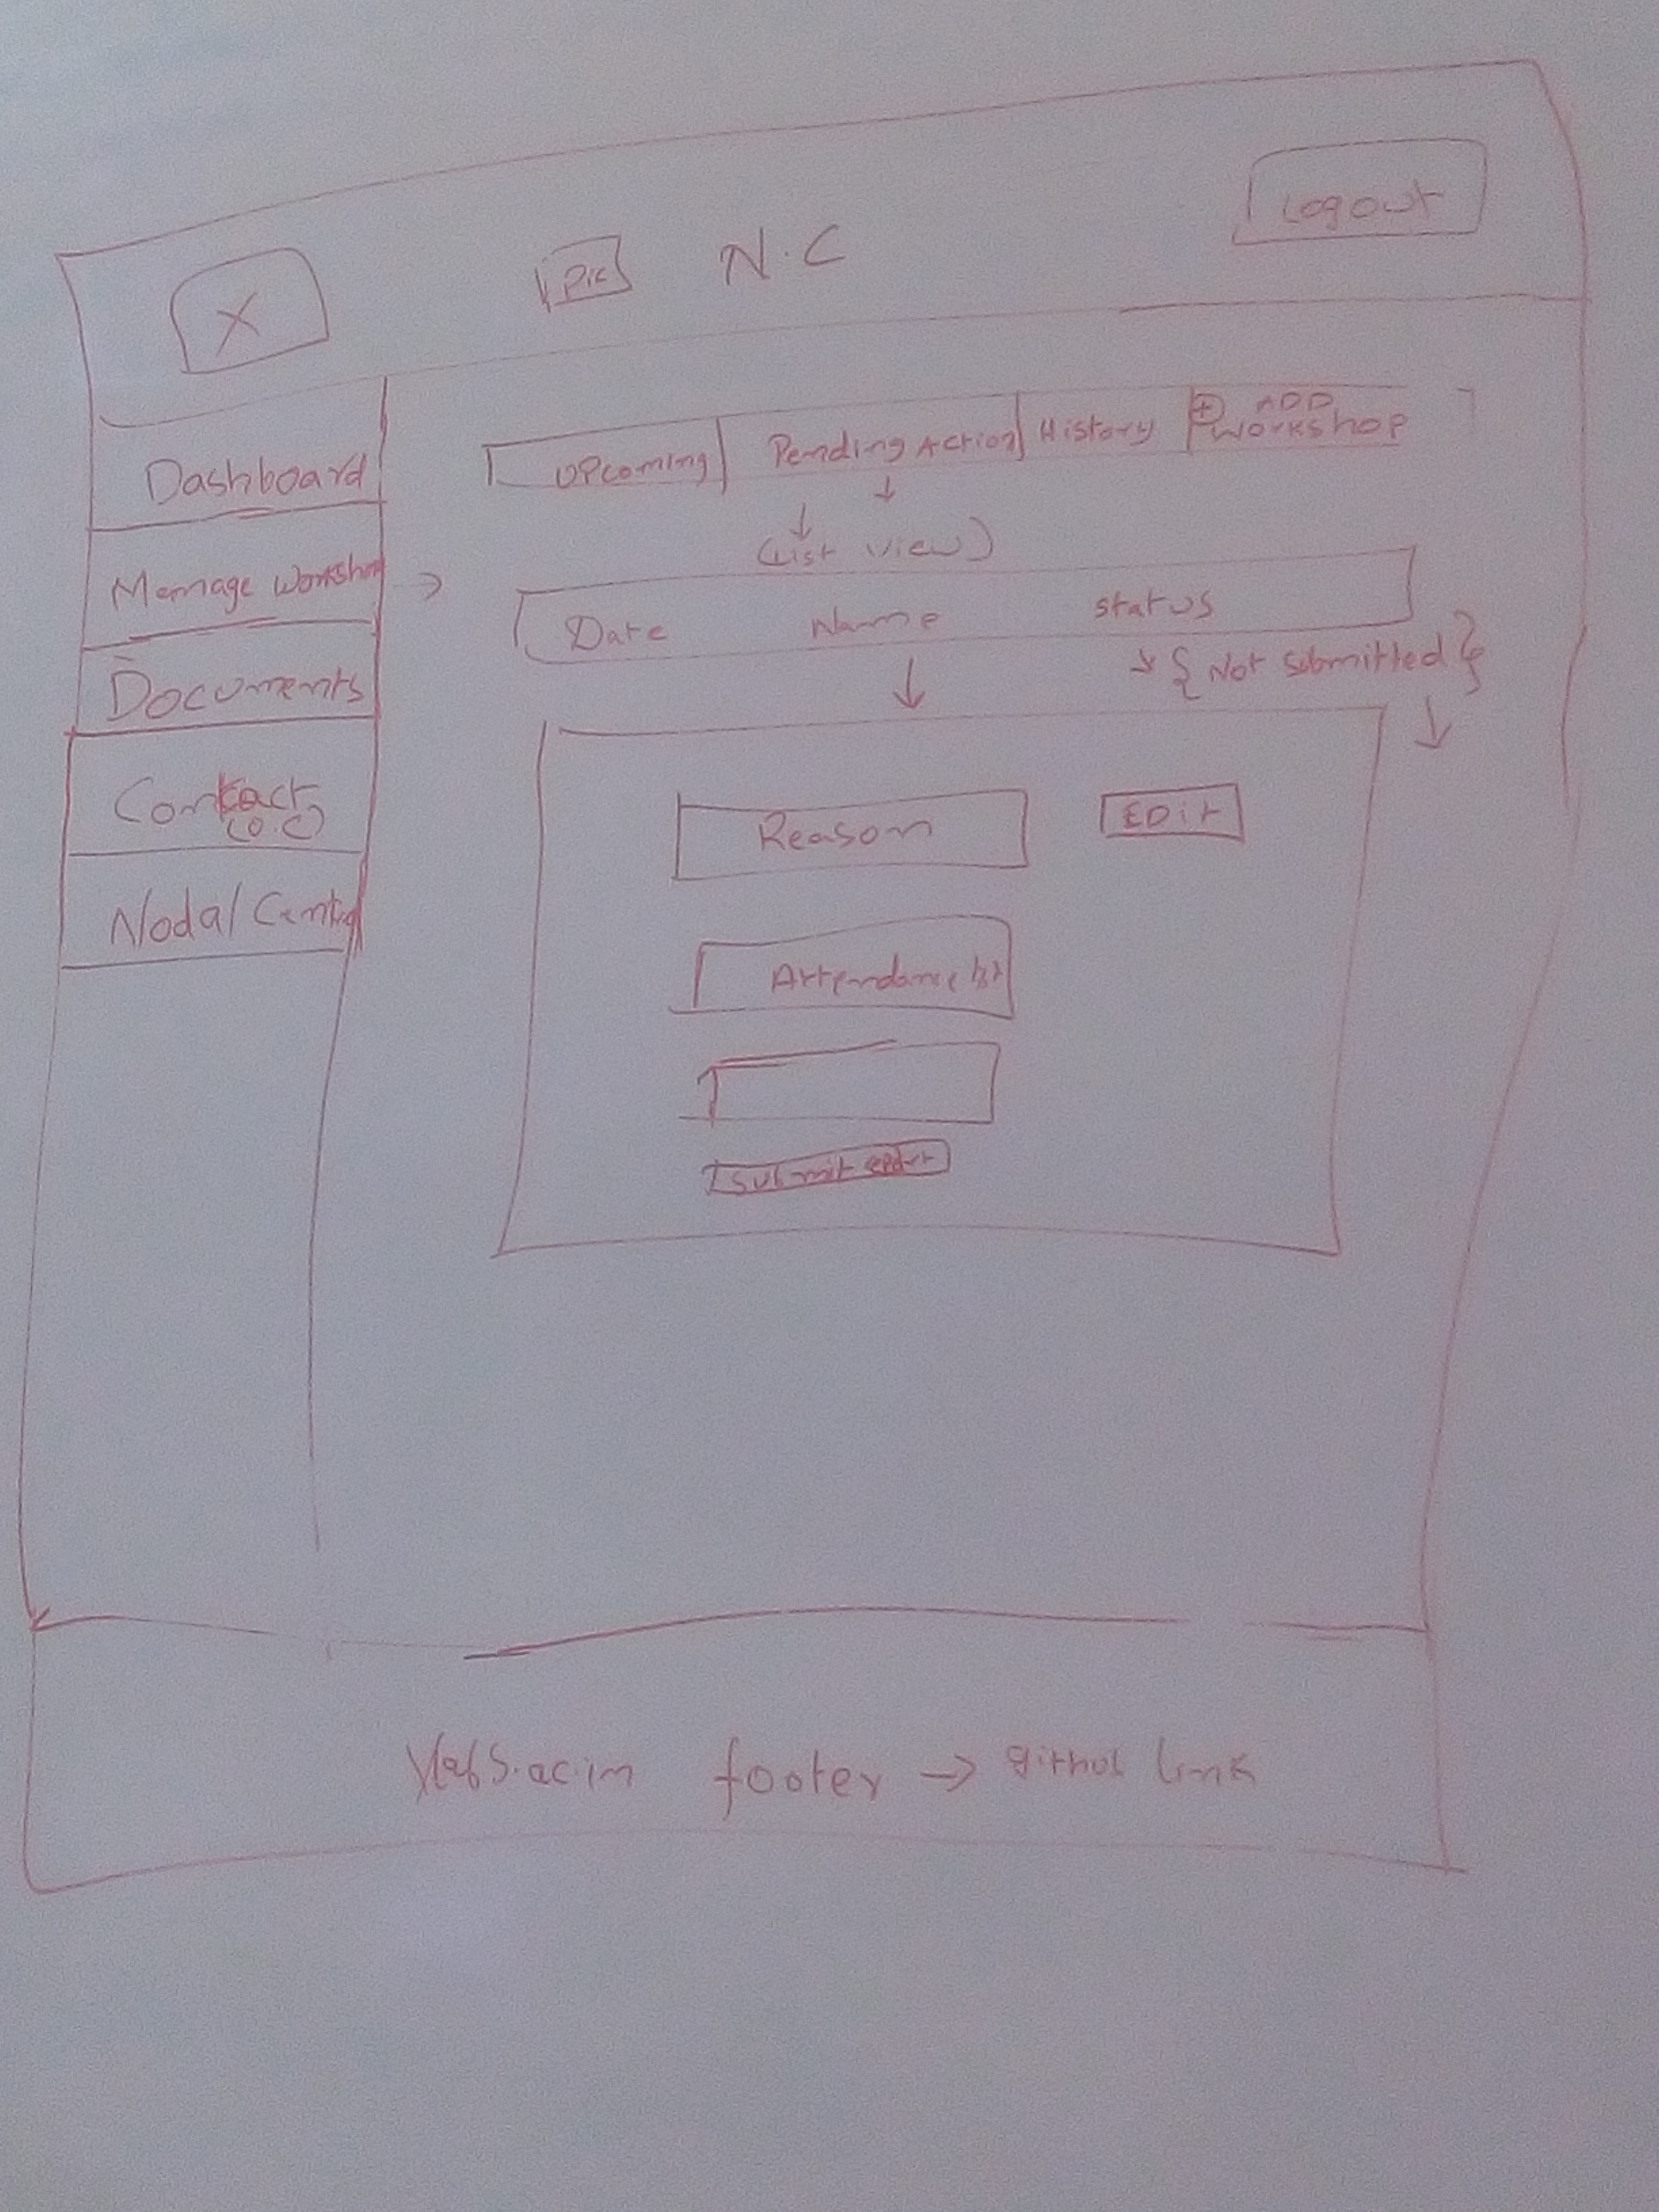 X
Pic N.C Logout
Dashboard
Manage Workshop
Documents
Contact
(O.C)
Nodal
Upcoming Pending Action History + ADD
Workshop
(List view)
Date Name Status
{ Not Submitted }
Reason EDit
Attendance
Submit
Vlabs.ac.in footer → github link